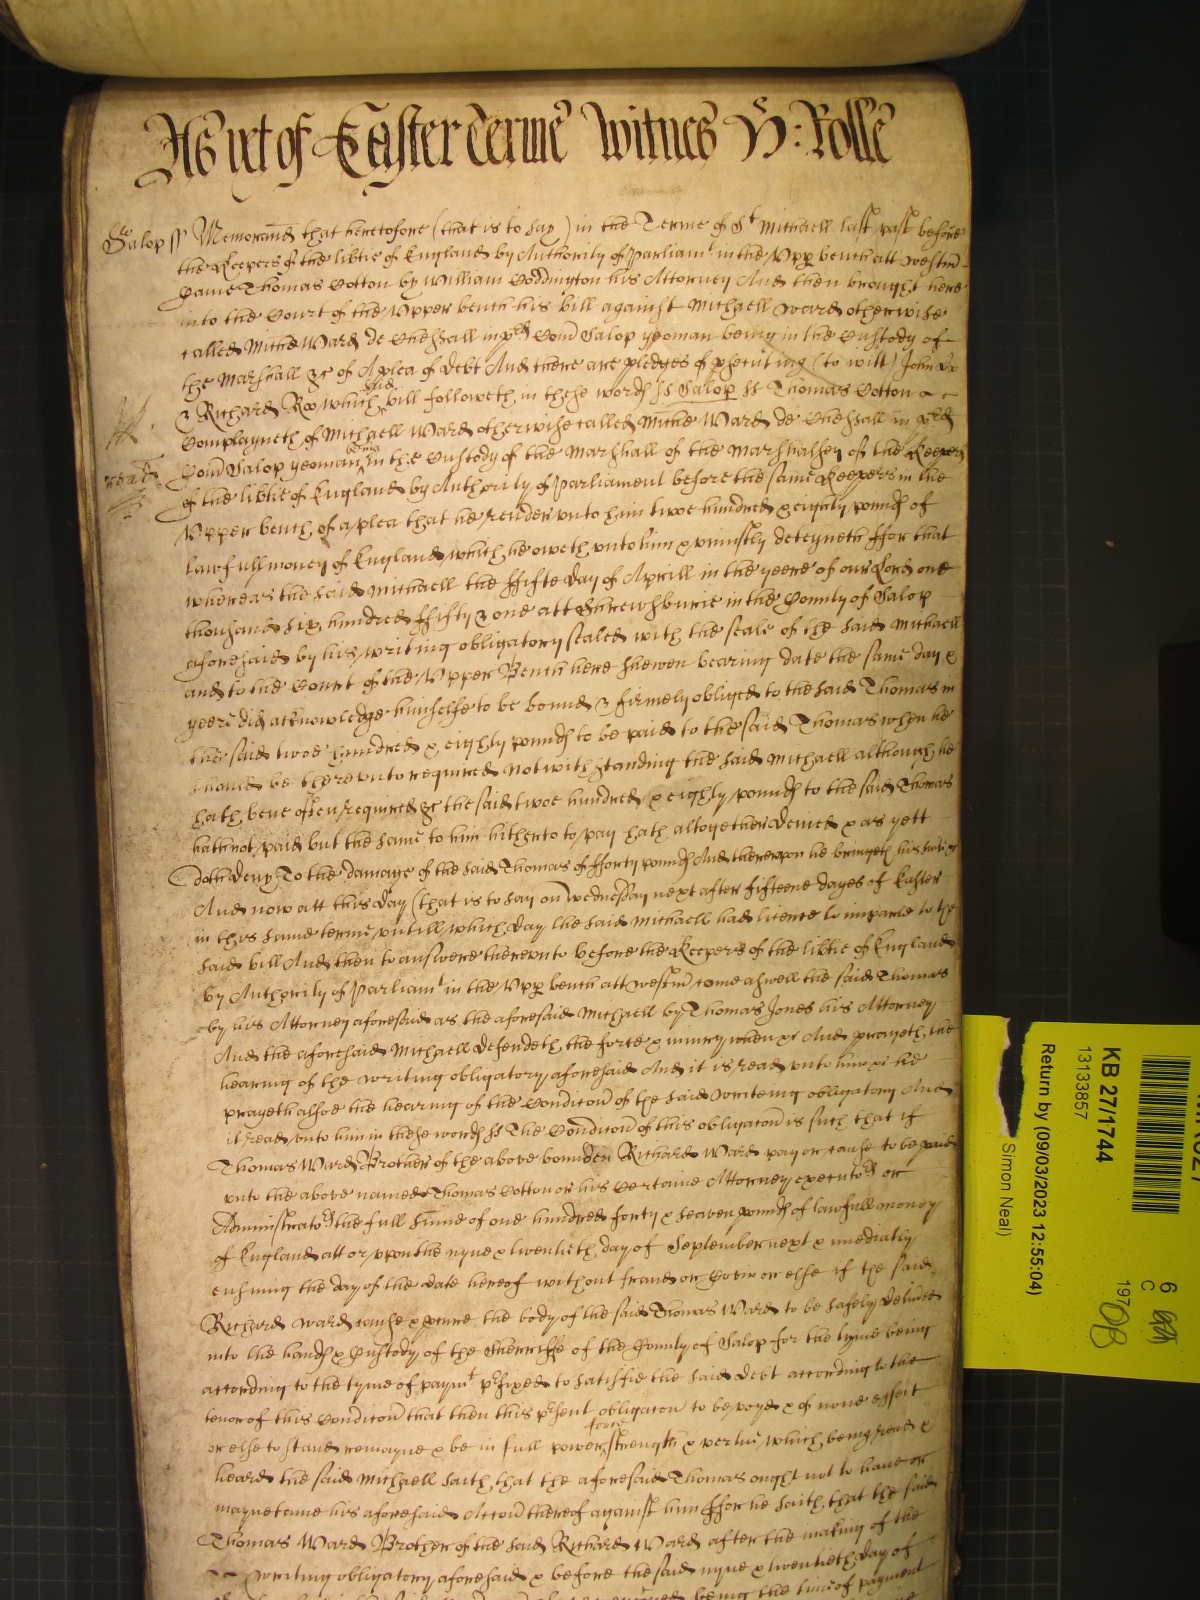 As yet of Easter Terme Witnes H: Rolle
Salop ss Memorand that heretofore (that is to say) in the Terme of St Michaell last past before
the Keepers of the libtie of England by Authority of Parliamt in the Upp bench att Westm
Came Thomas Cotton by William Coddington his Attorney And then brought here
into the Court of the Upper bench his bill against Michaell Ward otherwise
called Miche Ward de Cheshall in pred Com Salop yeoman being in the Custody of
the Marshall &c of A plea of debt And there are pledges of psecuting (to witt) John Do
& Richard Roo which said bill followeth in these words ss Salop ss Thomas Cotton
Complayneth of Michaell Ward otherwise called Miche Ward de Cheshall in pred
Com Salop yeoman being in the Custody of the Marshall of the Marshalsey of the Keepers
of the libtie of England by Authority of Parliament before the same Keepers in the
Upper bench of a plea that he render unto him twoe hundred & eighty pounds of
lawfull money of England which he oweth unto him & uniustly deteyneth ffor that
whereas the said Michaell the ffifte day of Aprill in the yeere of our Lord one
thousand six hundred ffifty & one att Shrewsburie in the County of Salop
aforesaid by his writing obligatory sealed with the seale of the said Michaell
and to the Court of the Upper Bench here shewen bearing date the same day &
yeere did acknowledge himselfe to be bound & firmely obliged to the said Thomas in
the said twoe hundred & eighty pounds to be paid to the said Thomas when he
should be thereunto required Notwithstanding the said Michaell although he
hath bene often required &c the said twoe hundred & eighty pounds to the said Thomas
hath not paid but the same to him hitherto to pay hath altogether denied & as yett
doth deny To the damage of the said Thomas of fforty pounds And thereupon he bringeth his suite &c
And now att this day (that is to say on Wednesday next after fifteene dayes of Easter
in this same terme untill which day the said Michaell had licence to imparle to the
said bill And then to answere thereunto before the Keepers of the libtie of England
by Authority of Parliamt in the Upp bench att Westm come aswell the said Thomas
by his Attorney aforesaid as the aforesaid Michaell by Thomas Jones his Attorney
And the aforesaid Michaell defendeth the force & iniury when &c And prayeth the
hearing of the writing obligatory aforesaid And it is read unto him &c he
prayeth alsoe the hearing of the Condicon of the said writeing obligatory And
it is read unto him in these words ss The Condicon of this obligacon is such that if
Thomas Ward Brother of the above bounden Richard Ward pay or cause to be paid
unto the above named Thomas Cotton or his Certaine Attorney executors or
Administrators the full summe of one hundred forty & seaven pounds of lawfull money
of England att or upon the nyne & twentieth day of September next & imediatly
ensuing the day of the date hereof without fraud or Covin or else if the said
Richard Ward cause & pcure the body of the said Thomas Ward to be safely delived
into the hands & Custody of the Sheriffe of the County of Salop for the tyme being
according to the tyme of paymt pfixed to satisfie the said debt according to the
tenor of this Condicon that then this psent obligacon to be voyd & of none effect
or else to stand remayne & be in full power force strength & vertue which being read &
heard the said Michaell saith that the aforesaid Thomas ought not to have or
maynteine his aforesaid Accon thereof against him ffor he saith that the said
Thomas Ward Brother of the said Richard Ward after the making of the
writing obligatory aforesaid & before the said nyne & twentieth day of
being the time of payment
KB 27/1744
13133857
Return by (09/03/2023 12:55:04)
Simon Neal)
6
C
197